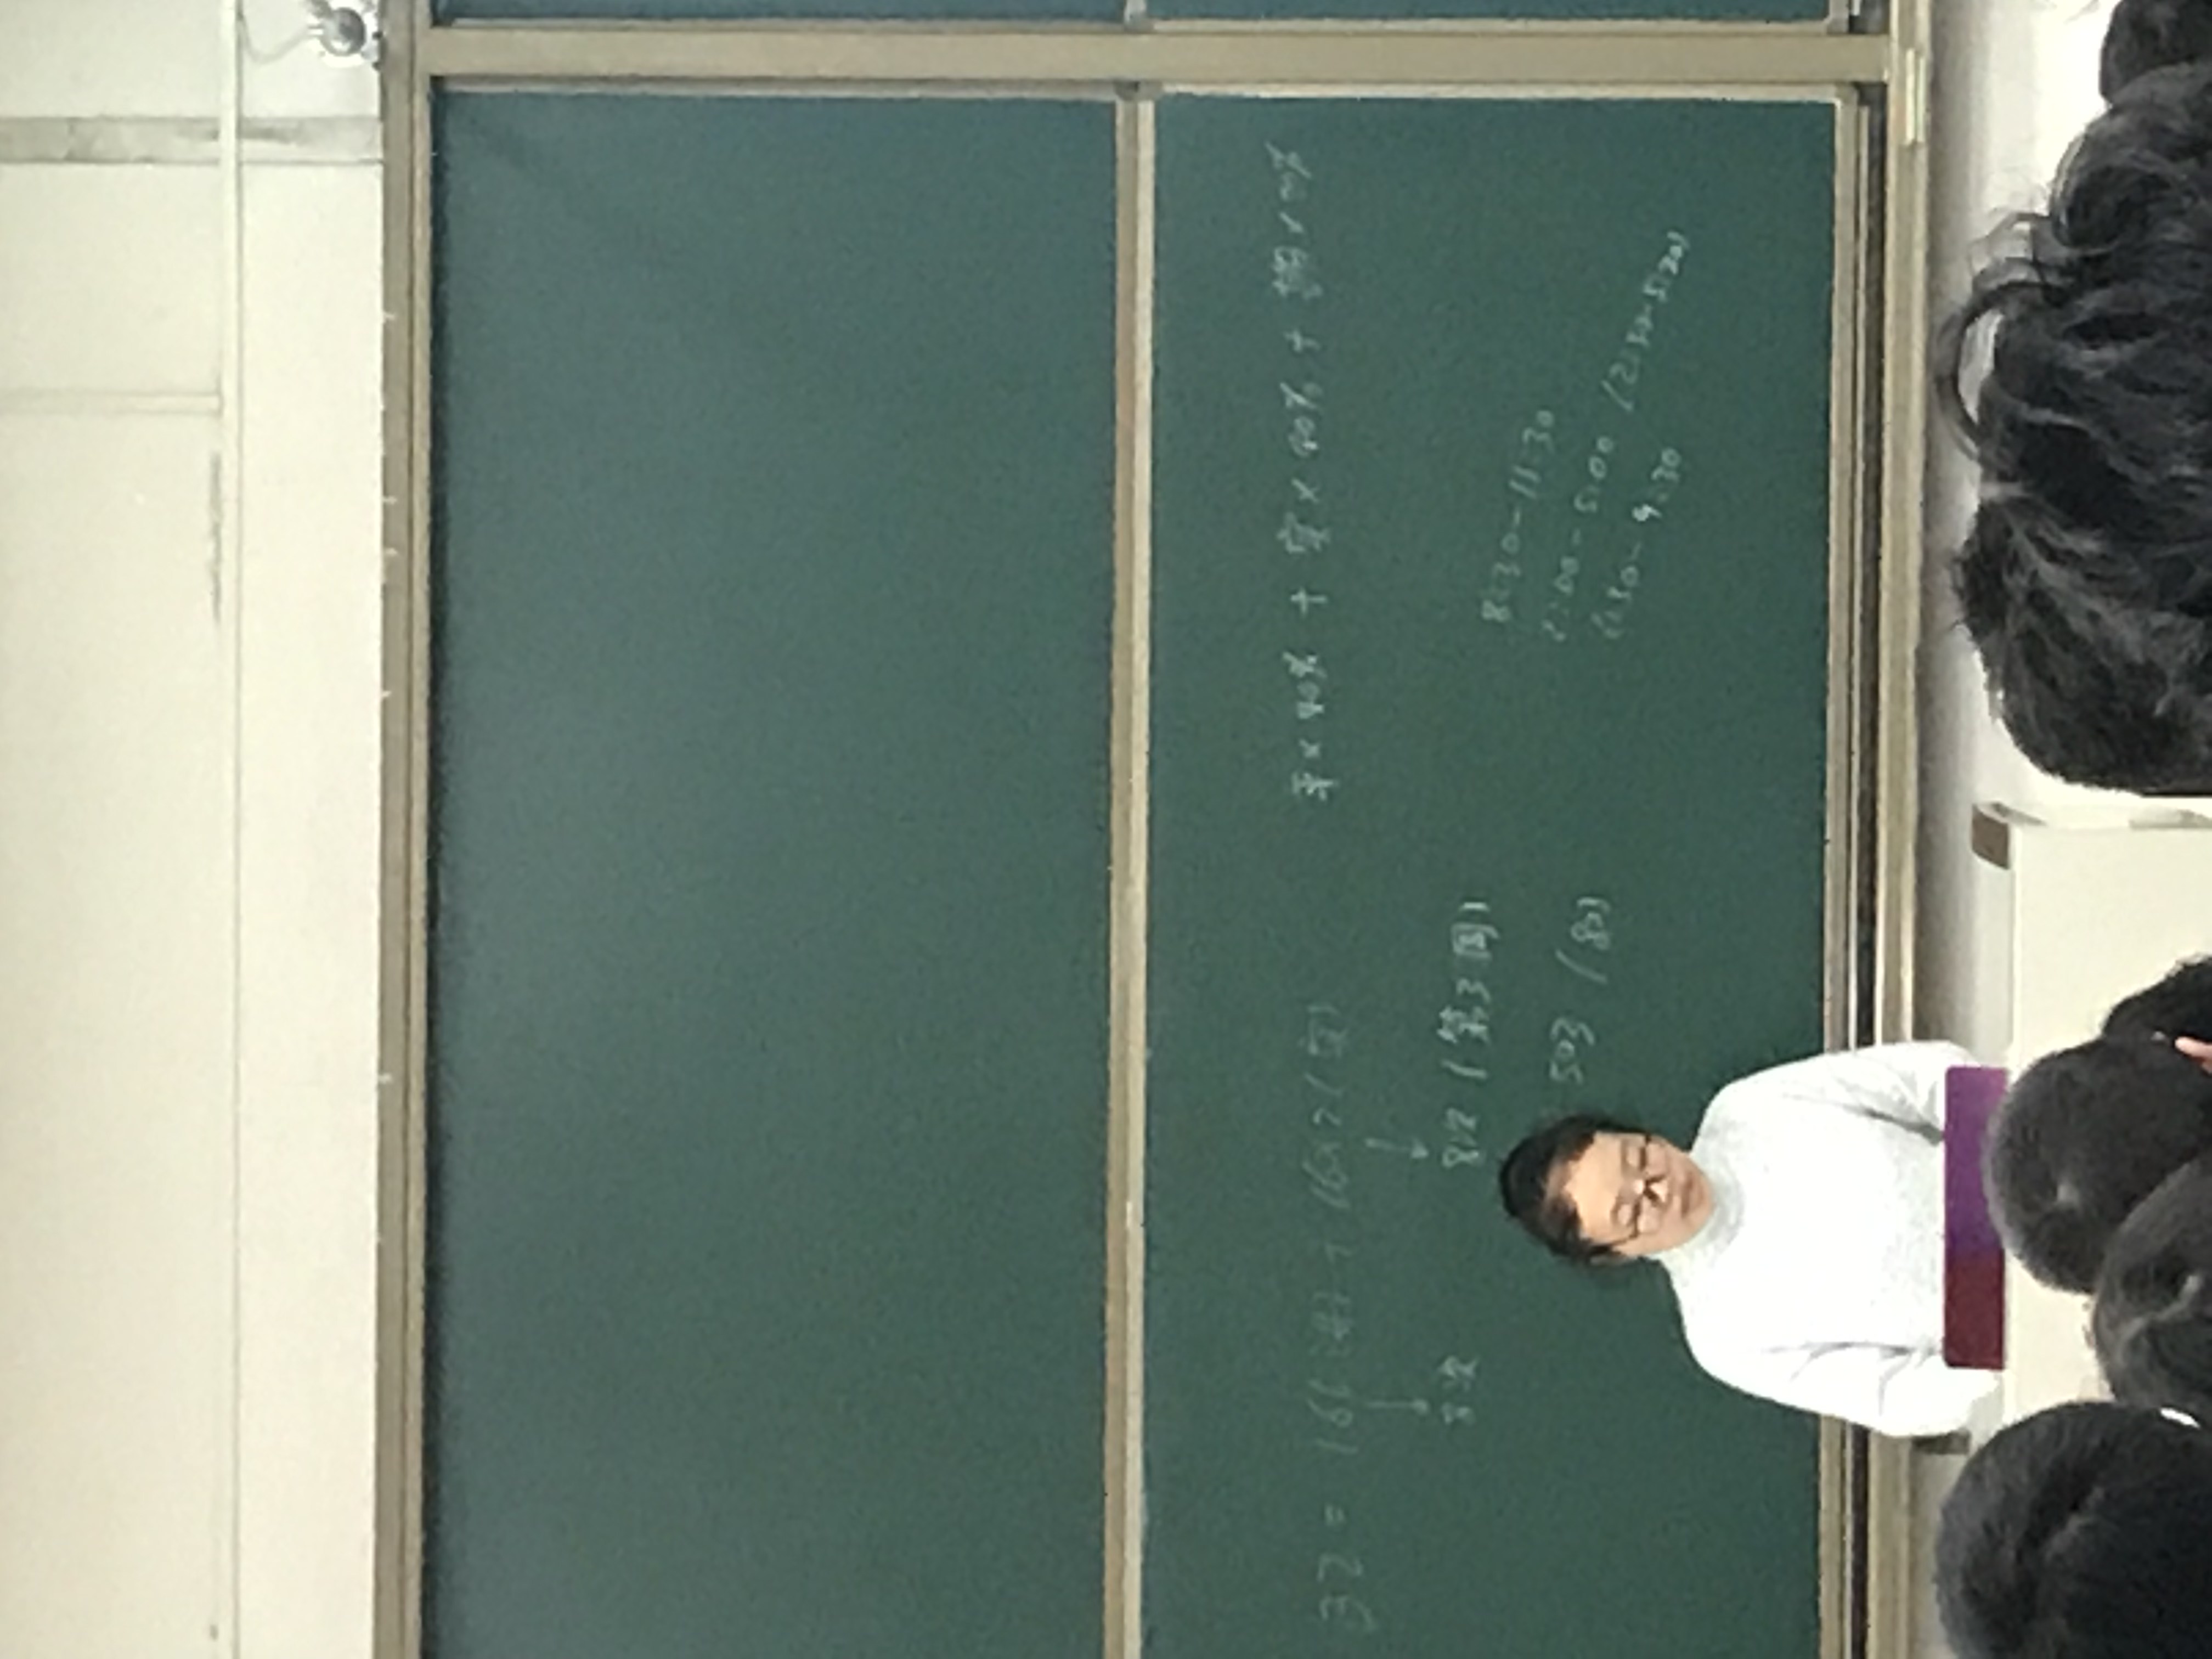 32 = 16 (讲) + 16×2 (实)
8次 8次 (第3周)
503 (80)
平×40% + 实×40% + 期×20%
8:30-11:30
2:00-5:00 (2:30-5:30)
6:30-9:30